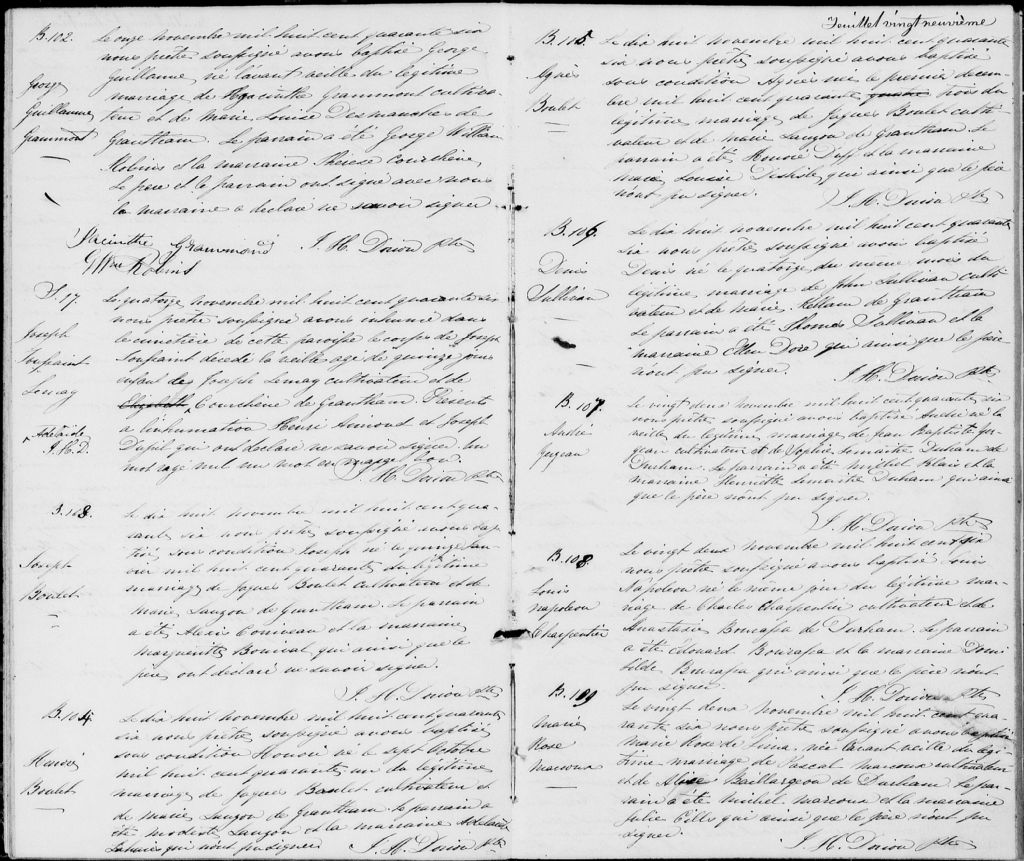 B. 102.
George
Guillaume
Grammont
Le onze novembre mil huit cent quarante six
nous prêtre soussigné avons baptisé George
Guillaume, né l'avant veille du légitime
mariage de Hyacinthe Grammont cultiva-
teur et de Marie Louise Desmanches de
Grantham. Le parrain a été George William
Robins et la marraine Therese Courchène
Le père et le parrain ont signé avec nous
la marraine a déclaré ne savoir signer
Hacinthe Grammond J. H. Dorion Ptre
G Wm Robins
S. 17
Joseph
Toussaint
Lemay
Adelaide
J. H. D.
Le quatorze novembre mil huit cent quarante six
nous prêtre soussigné avons inhumé dans
le cimetière de cette paroisse le corps de Joseph
Toussaint décédé la veille agé de quinze jours
enfant de Joseph Lemay cultivateur et de
Elizabeth Courchène de Grantham. Présents
à l'inhumation Henri Armond et Joseph
Dupil qui ont déclaré ne savoir signer. Un
mot rayé nul un mot en marge bon.
J. H. Dorion Ptre
B. 103.
Joseph
Boulet
Le dix huit novembre mil huit cent qua-
rante six nous prêtre soussigné avons bap-
tisé sous condition Joseph né le quinze jan-
vier mil huit cent quarante du légitime
mariage de Jaques Boulet cultivateur et de
Marie Lauzon de Grantham. Le parrain
a été Alexis Comineau et la marraine
Marguerite Bourval qui ainsi que le
père ont déclaré ne savoir signer.
J. H. Dorion Ptre
B. 104.
Honoré
Boulet
Le dix huit novembre mil huit cent quarante
six nous prêtre soussigné avons baptisé
sous condition Honoré né le sept Octobre
mil huit cent quarante un du légitime
mariage de Jaques Boulet cultivateur et
de Marie Lauzon de Grantham le parrain a
été Modeste Lauzon et la marraine Adelaide
qui n'ont pu signer J. H. Dorion Ptre
Feuillet vingt neuvième
B. 105.
Agnès
Boulet
Le dix huit novembre mil huit cent quarante
six nous prêtre soussigné avons baptisé
sous condition Agnès née le premier décem-
bre mil huit cent quarante trois du
légitime mariage de Jaques Boulet culti-
vateur et de Marie Lauzon de Grantham. Le
parrain a été Honoré Duff et la marraine
Marie Louise Deslisle qui ainsi que le père
n'ont pu signer.
J. H. Dorion Ptre
B. 106.
Denis
Sullivan
Le dix huit novembre mil huit cent quarante
six nous prêtre soussigné avons baptisé
Denis né le quatorze du même mois du
légitime mariage de John Sullivan culti-
vateur et de Marie Killam de Grantham
Le parrain a été Thomas Sullivan et la
marraine Ellen Dore qui ainsi que le père
n'ont pu signer.
J. H. Dorion Ptre
B. 107.
André
Le vingt deux novembre mil huit cent quarante six
nous prêtre soussigné avons baptisé André né la
veille du légitime mariage de Jean Baptiste
cultivateur et de Sophie Lemaitre Duhaim de
Durham. Le parrain a été Michel Blais et la
marraine Henriette Lemaitre Duham qui ainsi
que le père n'ont pu signer.
J. H. Dorion Ptre
B. 108
Louis
Napoleon
Charpentier
Le vingt deux novembre mil huit cent six
nous prêtre soussigné avons baptisé Louis
Napoléon né le même jour du légitime ma-
riage de Charles Charpentier cultivateur et de
Anastasie Bourassa de Durham. Le parrain
a été Edouard Bourassa et la marraine Domi-
tilde Bourassa qui ainsi que le père n'ont
pu signer.
J. H. Dorion Ptre
B. 109
Marie
Rose
Marcoux
Le vingt deux novembre mil huit cent qua-
rante six nous prêtre soussigné avons baptisé
Marie Rose de Lima née l'avant veille du légi-
time mariage de Pascal Marcoux cultivateur
et de Alice Baillargeon de Durham. Le par-
rain a été Michel Marcoux et la marraine
Julie Cille qui ainsi que le père n'ont pu
signer.
J. H. Dorion Ptre